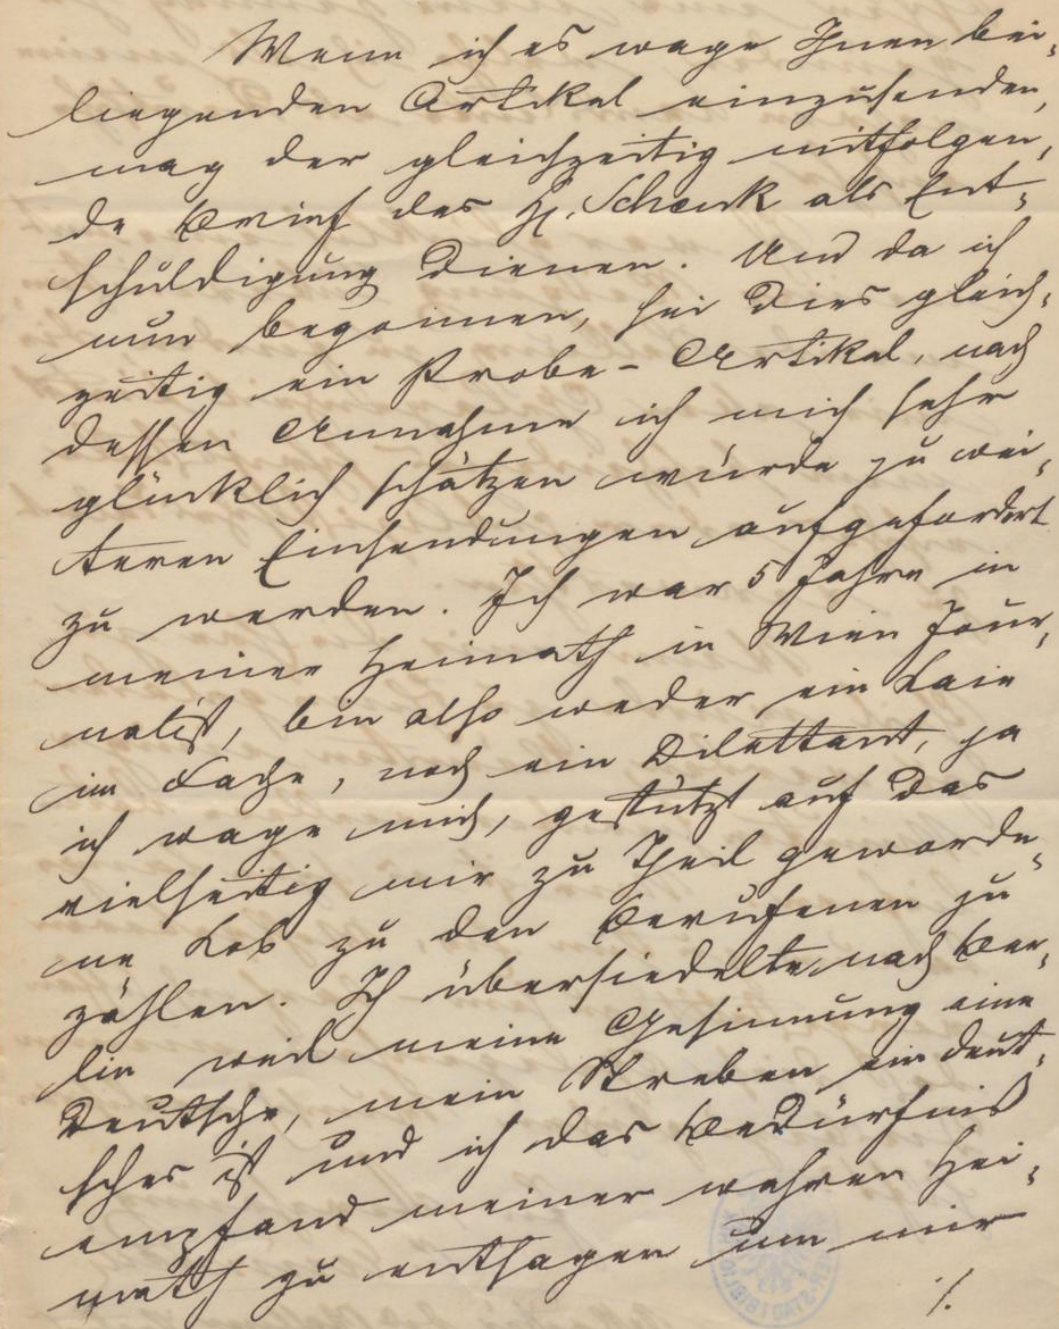 Wenn ich es wage Ihnen bei-
liegenden Artikel einzusenden,
mag der gleichzeitig mitfolgen-
de Brief des H. Schenk als Ent-
schuldigung dienen. Und da ich
nun begonnen, sei dies gleich-
zeitig ein Probe-Artikel, nach
dessen Annahme ich mich sehr
glücklich schätzen würde zu wei-
teren Einsendungen aufgefordert
zu werden. Ich war 5 Jahre in
meiner Heimath in Wien Jour-
nalist, bin also weder ein Laie
im Fache, noch ein Dilettant, ja
ich wage mich, gestützt auf das
vielseitig mir zu Theil geworde-
ne Lob zu den Berufenen zu
zählen. Ich übersiedelte nach Ber-
lin weil meine Gesinnung eine
Deutsche, mein Streben ein deut-
sches ist und ich das Bedürfniß
empfand meiner wahren Hei-
math zu entsagen um mir
./.